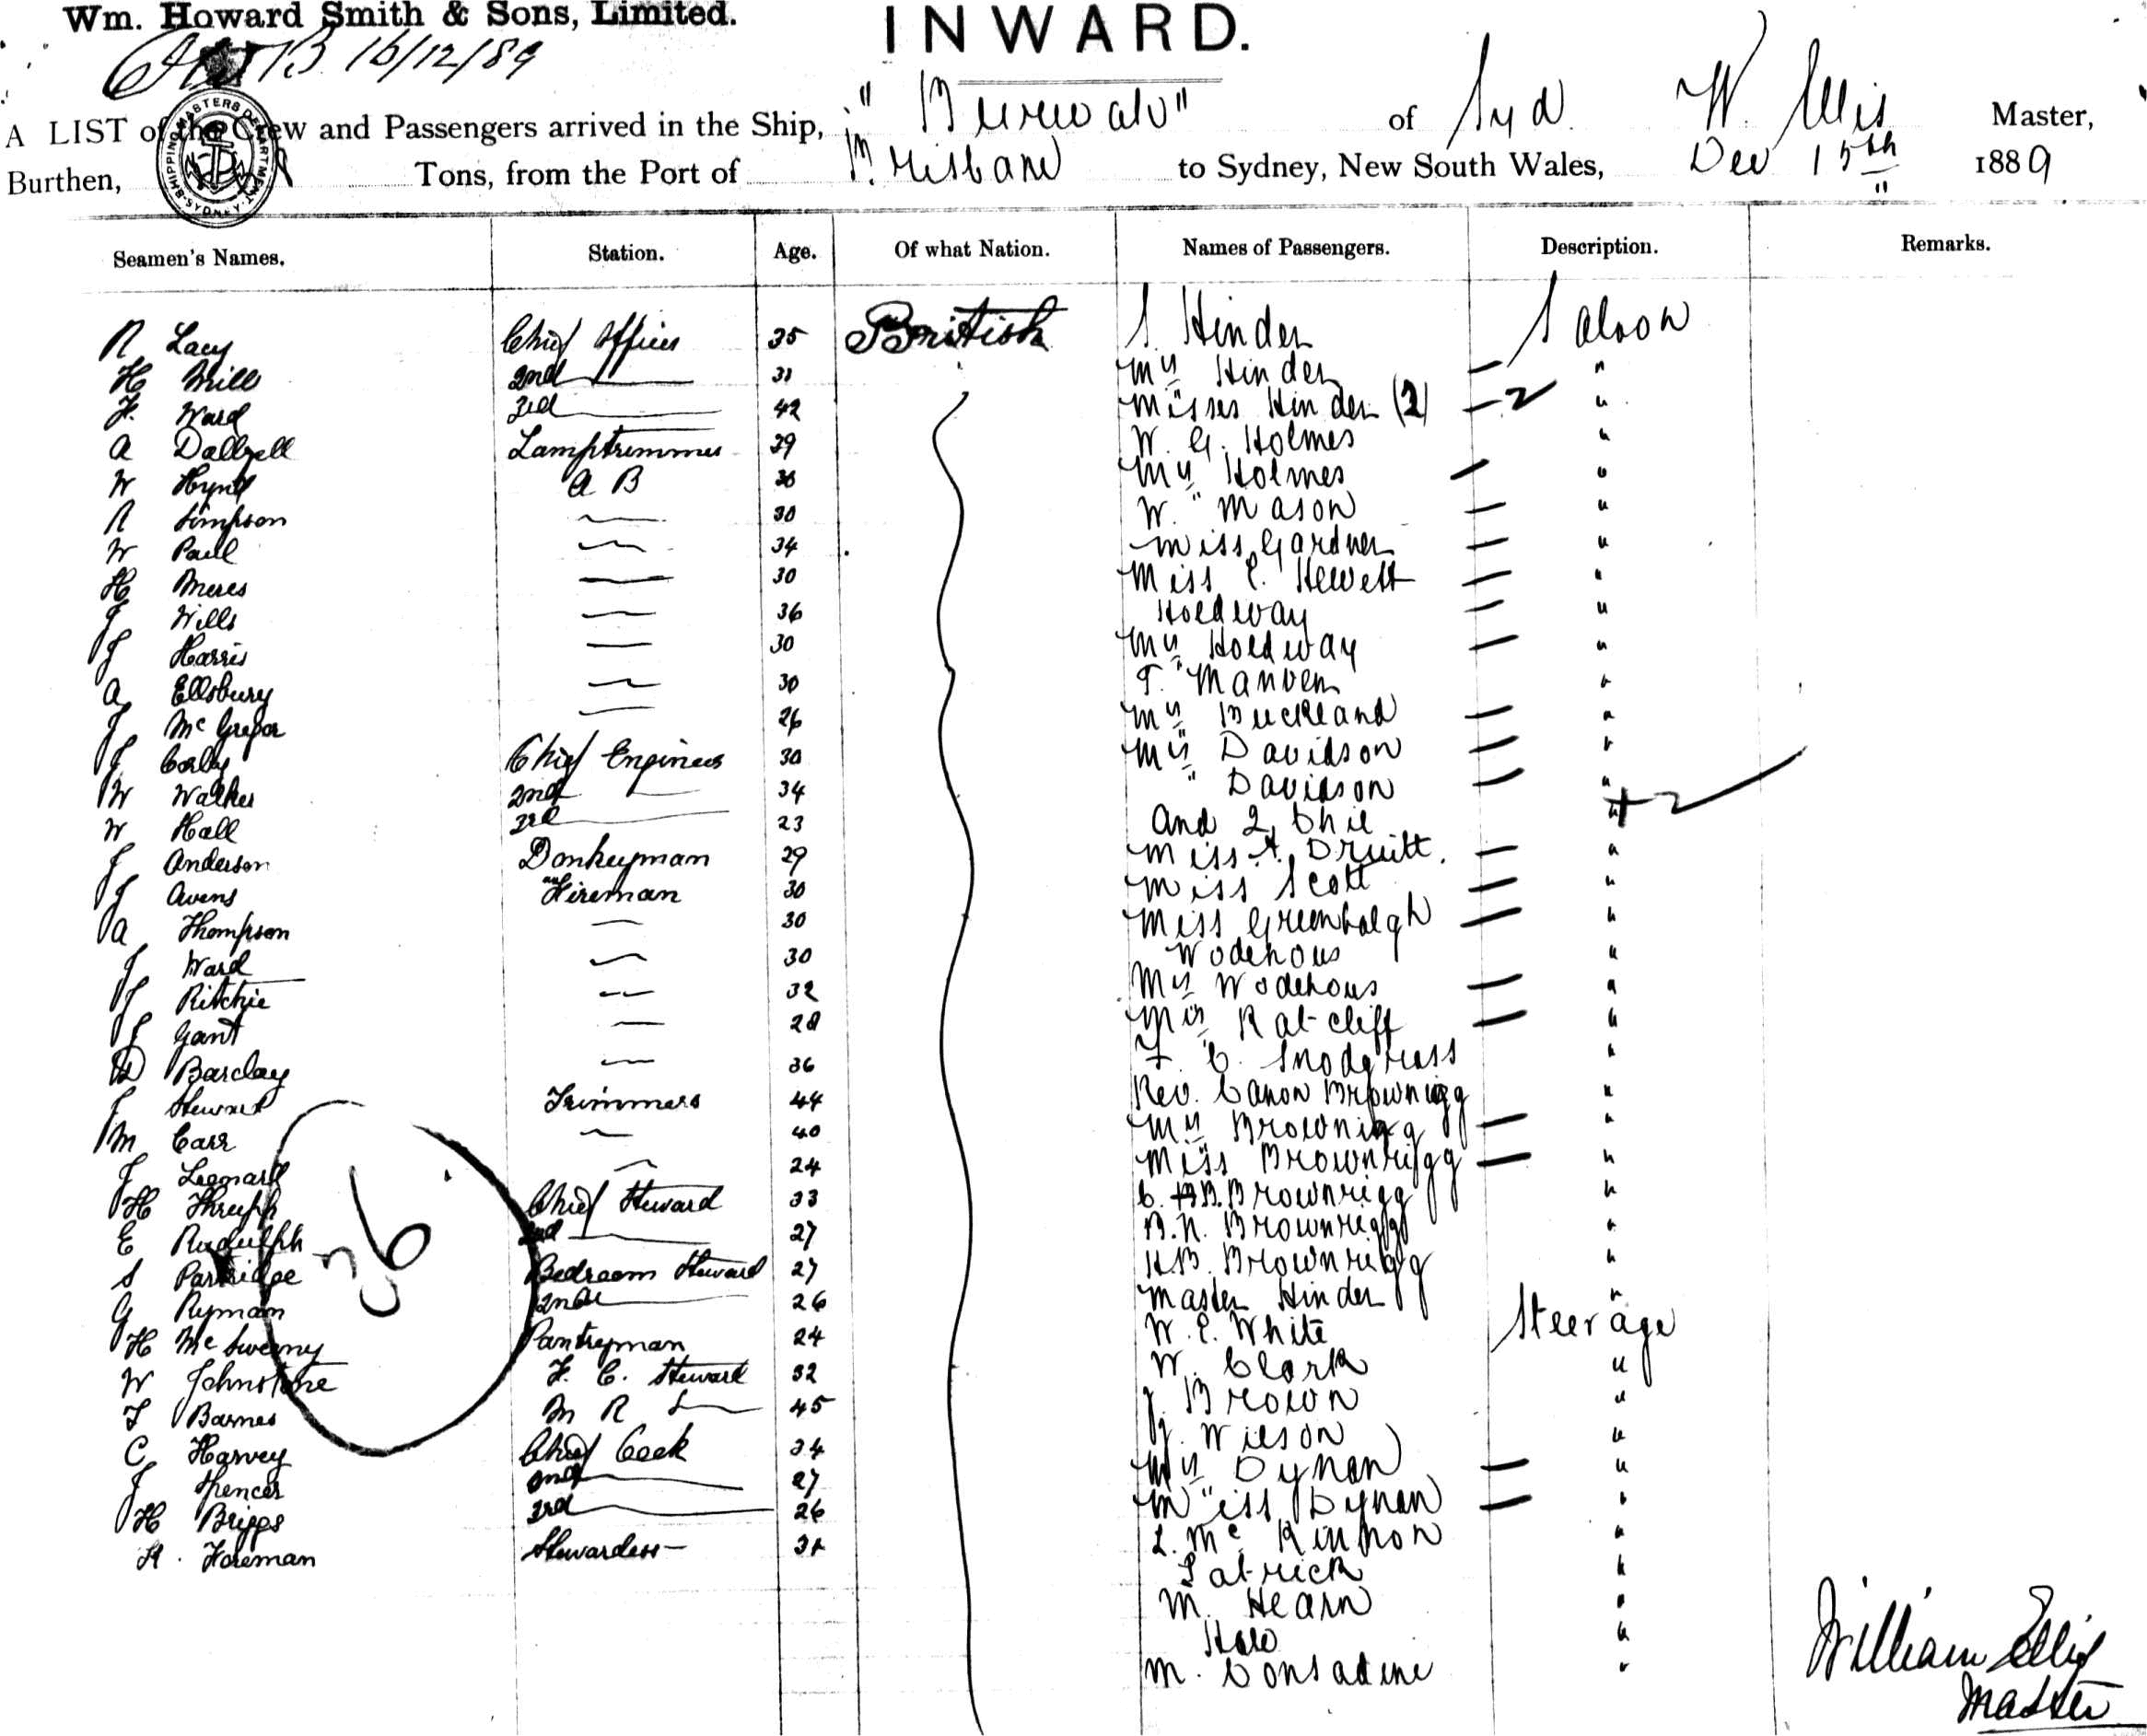 Wm. Howard Smith & Sons, Limited.
INWARD.
16/12/89
A LIST of the Crew and Passengers arrived in the Ship, "Burwah" of Syd W. Ellis Master,
Burthen, Tons, from the Port of Brisbane to Sydney, New South Wales, Dec 15th 1889
SHIPPING MASTERS DEPARTMENT SYDNEY
Seamen's Names. Station. Age. Of what Nation. Names of Passengers. Description. Remarks.
R Lacy Chief Officer 35 British S Hinder Saloon
H Mill 2nd 31 Mrs Hinder "
F. Ward 3rd 42 Misses Hinder (2) 2 "
A Dallzell Lamptrimmer 29 W. G. Holmes "
W Hynd A B 36 Mrs Holmes "
R Simpson 30 W. Mason "
W Paul 34 Miss Gardner "
H Meres 30 Miss E. Hewett "
J Wills 36 Holdway "
J Harris 30 Mrs Holdway "
A Ellsbury 30 T. Manven "
J McGregor 26 Mrs Buckland "
J Corby Chief Engineer 30 Mrs Davidson "
W Walker 2nd 34 " Davidson "
W Hall 3rd 23 and 2 Chil " + 2
J Anderson Donkeyman 29 Miss A. Druitt. "
J Avens Fireman 30 Miss Scott "
A Thompson 30 Miss Greenhalgh "
J Ward 30 Wodehous "
J Ritchie 32 Mrs Wodehous "
J Gant 28 Mrs Ratcliff "
D Barclay 36 F. C. Snodgrass "
J Stewart Trimmers 44 Rev. Canon Brownrigg "
M Carr 40 Mrs Brownrigg "
J Leonard 24 Miss Brownrigg "
H Thrupp Chief Steward 33 C. B. Brownrigg "
E Rudulph 2nd 27 B.N. Brownrigg "
S Partridge Bedroom Steward 27 H.B. Brownrigg "
G Ryman 2nd 26 Master Hinder "
H McSweeny Pantryman 24 W. E. White Steerage
W Johnstone F. C. Steward 32 W. Clark "
T Barnes M R S 45 J. Brown "
C Harvey Chief Cook 34 J. Wilson "
J Spencer 2nd 27 Mrs Dynan "
H Briggs 3rd 26 Miss Dynan "
H. Foreman Stewardess 31 L. McKinnon "
Patrick "
M. Hearn "
Haw "
M. Consadine "
36
William Ellis
Master